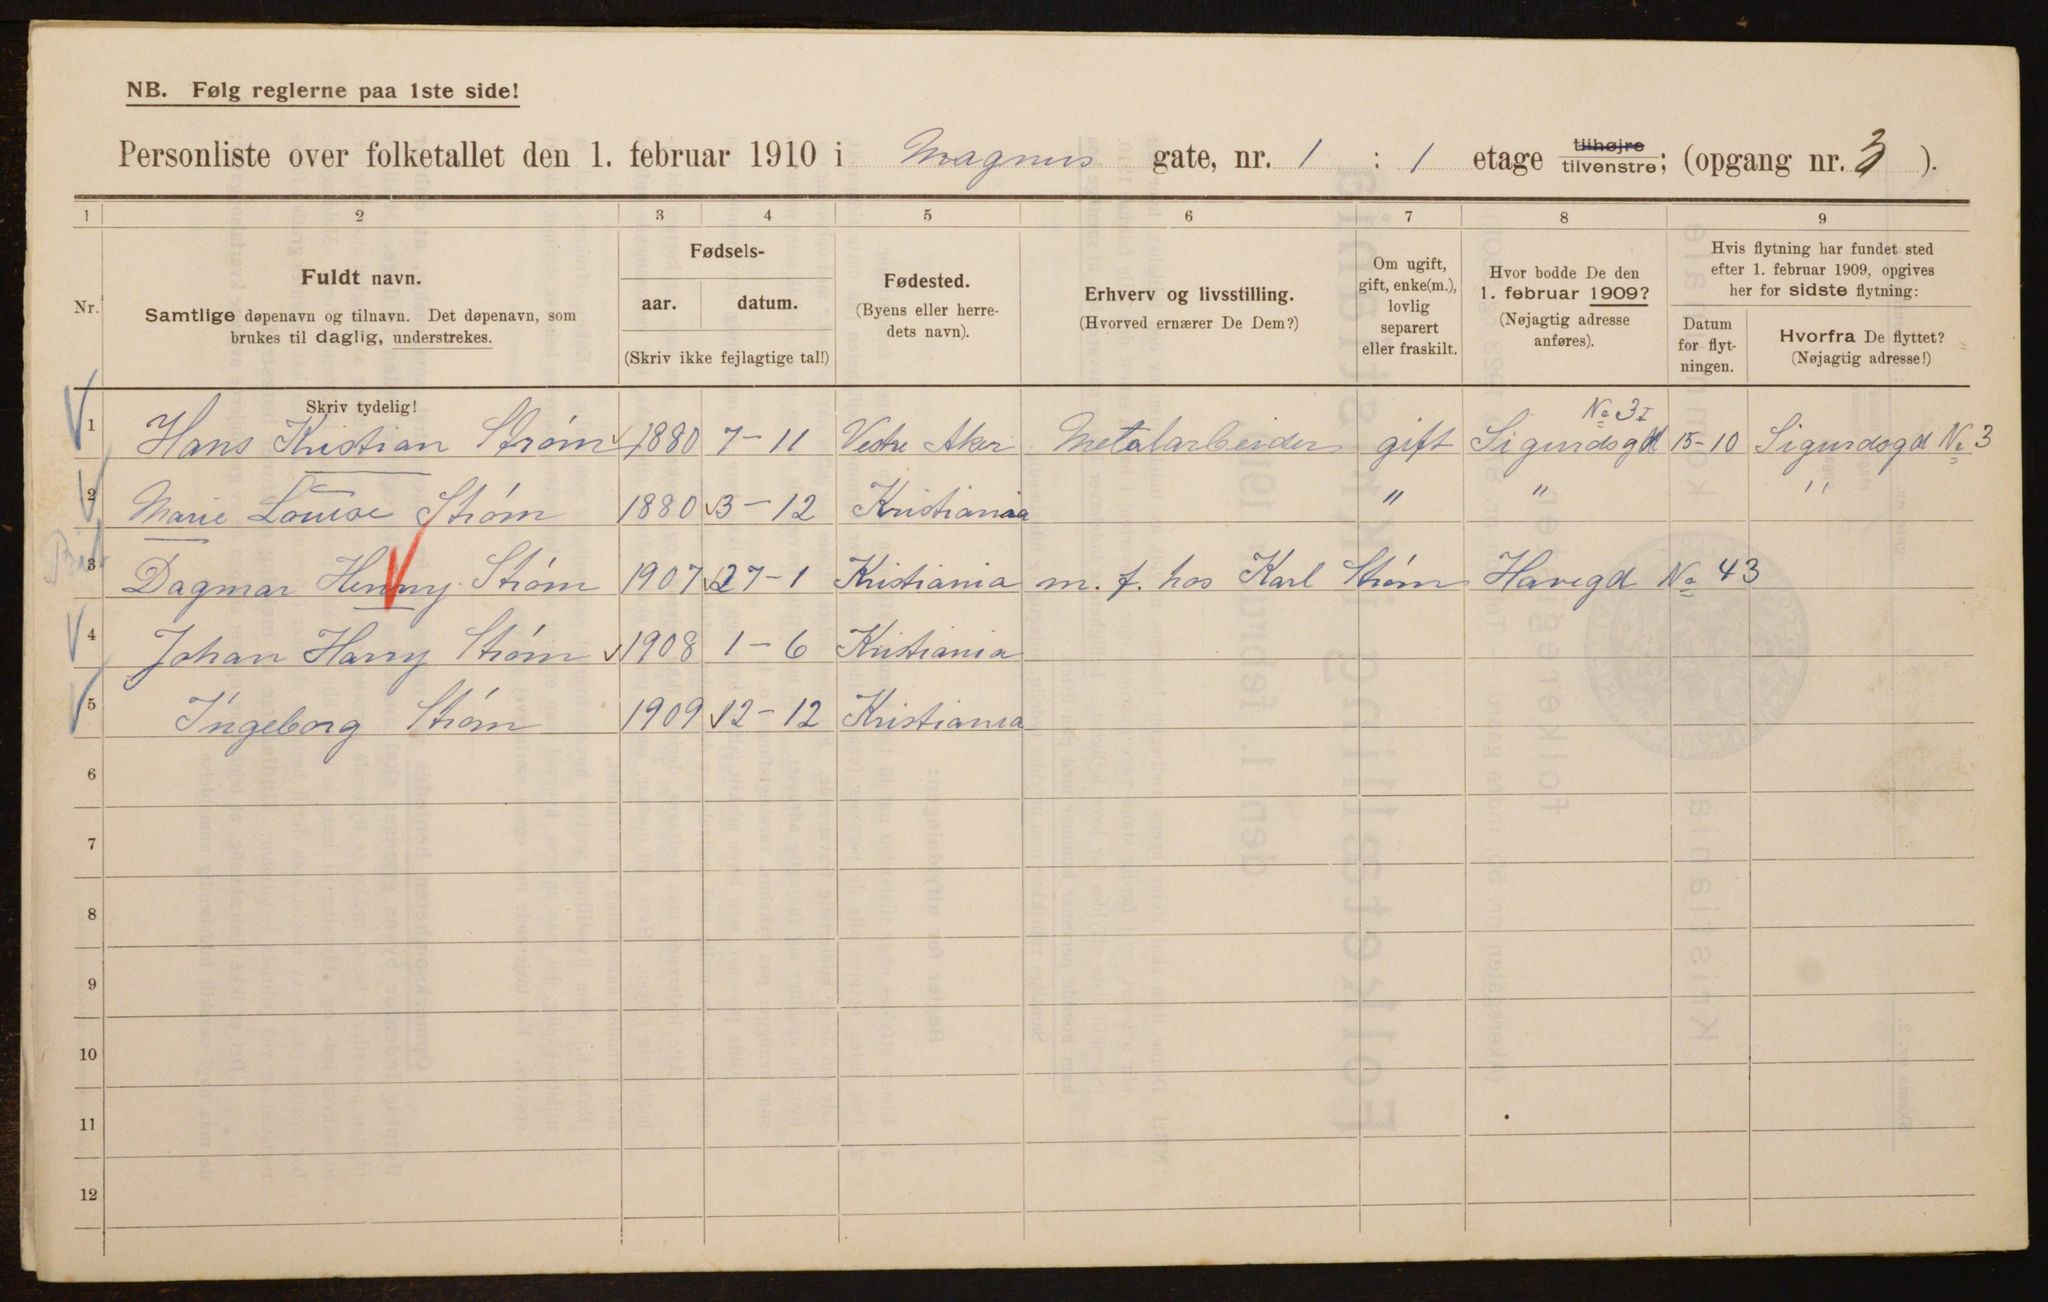 NB. Følg reglerne paa 1ste side!
Personliste over folketallet den 1. februar 1910 i Magnus gate, nr. 1 : 1 etage tilhøjre tilvenstre; (opgang nr. 3 ).
1 2 3 4 5 6 7 8 9
Nr.
Fuldt navn.
Samtlige døpenavn og tilnavn. Det døpenavn, som
brukes til daglig, understrekes.
Fødsels-
aar. datum.
(Skriv ikke fejlagtige tal!)
Fødested.
(Byens eller herre-
dets navn).
Erhverv og livsstilling.
(Hvorved ernærer De Dem?)
Om ugift,
gift, enke(m.),
lovlig
separert
eller fraskilt.
Hvor bodde De den
1. februar 1909?
(Nøjagtig adresse
anføres).
Hvis flytning har fundet sted
efter 1. februar 1909, opgives
her for sidste flytning:
Datum
for flyt-
ningen.
Hvorfra De flyttet?
(Nøjagtig adresse!)
Skriv tydelig!
No 3 I
1 Hans Kristian Strøm 1880 7-11 Vestre Aker Metalarbeider gift Sigurdsgd 15-10 Sigurdsgd No 3
2 Marie Louise Strøm 1880 3-12 Kristiania " " "
3 Dagmar Henny Strøm 1907 27-1 Kristiania m. f. hos Karl Strøm Havegd No 43
4 Johan Harry Strøm 1908 1-6 Kristiania
5 Ingeborg Strøm 1909 12-12 Kristiania
6
7
8
9
10
11
12